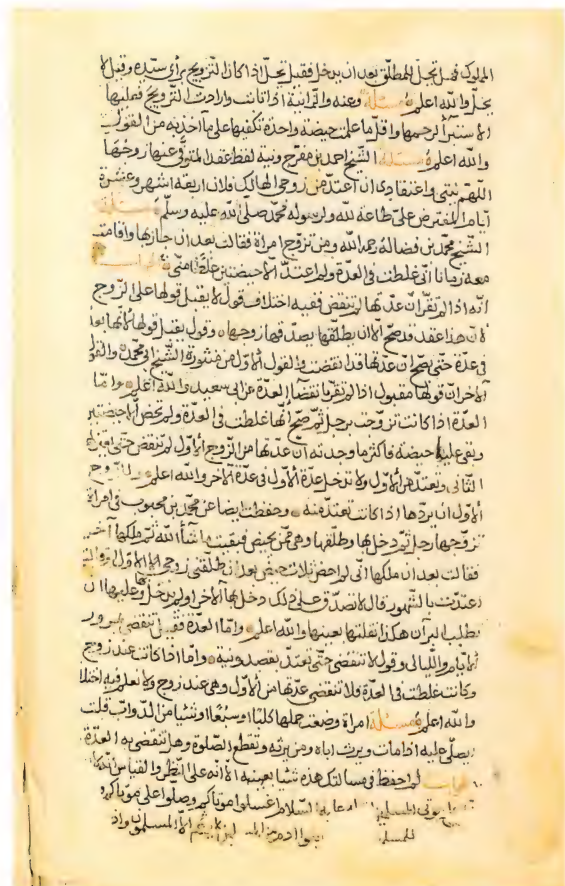 المملوك فهل تحل للمطلق بعد ان يدخل فقيل تحل اذا كان التزويج برأي سيده وقيل لا
يحل والله اعلم مسئلة وعنه والزانية اذا تابت وارادت التزويج فعليها
الاستبرأ لرحمها واقل ما عليها حيضة واحدة تكفيها على ما اخذ به من القول
والله اعلم مسئلة الشيخ احمد بن مفرج ونية لفظ عقد المتوفى عنها زوجها
اللهم نيتي واعتقادي ان اعتد من زوجي الهالك فلان اربعة اشهر وعشرة
ايام المفترض علي طاعة لله ولرسوله محمد صلى الله عليه وسلم مسئلة
الشيخ محمد بن فضالة رحمه الله ومن تزوج امراة فقالت بعد ان جاز بها واقامت
معه زمانا اني غلطت في العدة ولم اعتد الا حيضتين غلطا مني الجواب
انه اذا لم تقر ان عدتها لم تنقض ففيه اختلاف قول لا يقبل قولها على الزوج
لان هذا عقد قد صح الا ان يطلقها يصدقها زوجها وقول يقبل قولها لانها بعد
في عدة حتى يصح ان عدتها قد انقضت والقول الاول من منثورة الشيخ ابي محمد والقول
الآخر ان قولها مقبول اذا لم تقر بانقضاء العدة عن ابي سعيد والله اعلم واما
العدة اذا كانت تزوجت برجل ثم صح انها غلطت في العدة ولم تحض الا حيضتين
وبقي عليها حيضة فاكثر ما وجدته ان عدتها من الزوج الاول لم تنقض حتى
الثاني وتعتد من الاول ولا تدخل عدة الاول في عدة الآخر والله اعلم وللزوج
الاول ان يردها اذا كانت تعتد منه وحفظت ايضا عن محمد بن محبوب في امراة
تزوجها رجل ثم دخل بها وطلقها وهي ممن يحيض فبقيت ما شأ الله ثم ملكها آخر
فقالت بعد ان ملكها اني لم احض ثلاث حيض بعد ان طلقني زوجي الاول
اعتدت بالشهور قال لا تصدق على ذلك دخل بها الآخر او لم يدخل وعليها ان
تطلب البرآن هكذا نقلتها بعينها والله اعلم واما العدة فقيل تنقضي بمرور
الايام والليالي وقول لا تنقضي حتى تعتد بقصد ونية واما اذا كانت عند زوج
وكانت غلطت في العدة فلا تنقضي عدتها من الاول وهي عند زوج ولا نعلم فيه اختلا
والله اعلم مسئلة امراة وضعت حملها كلبا او سبعا او شيا من الدواب قلت
يصلى عليه اذا مات ويرث اباه ومن يرثه وتقطع الصلوة وهل تنقضي به العدة
الجواب لم احفظ في مسالتك هذه شيا بعينه الا انه على النظر والقياس
موتى المسلمين عليه السلام اغسلوا موتاكم وصلوا على موتاكم
للمسلمين الا المسلمون